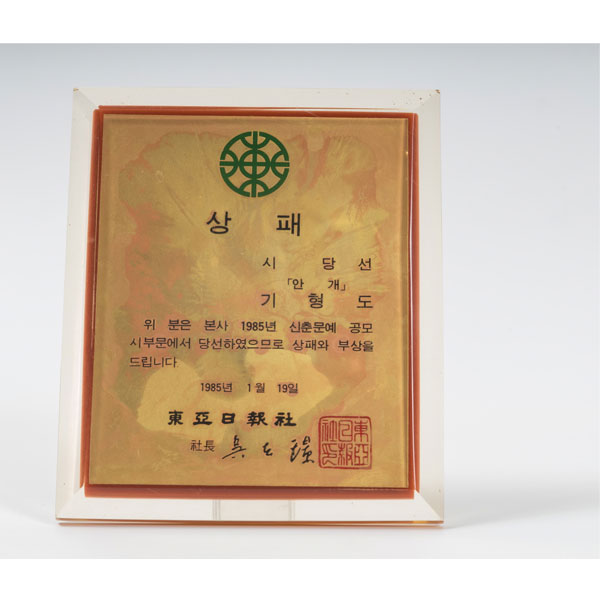 상 패
시 당 선
「안 개」
기 형 도
위 분은 본사 1985년 신춘문예 공모
시부문에서 당선하였으므로 상패와 부상을
드립니다
1985년 1월 19일
東亞日報社
社長
東亞日報社印